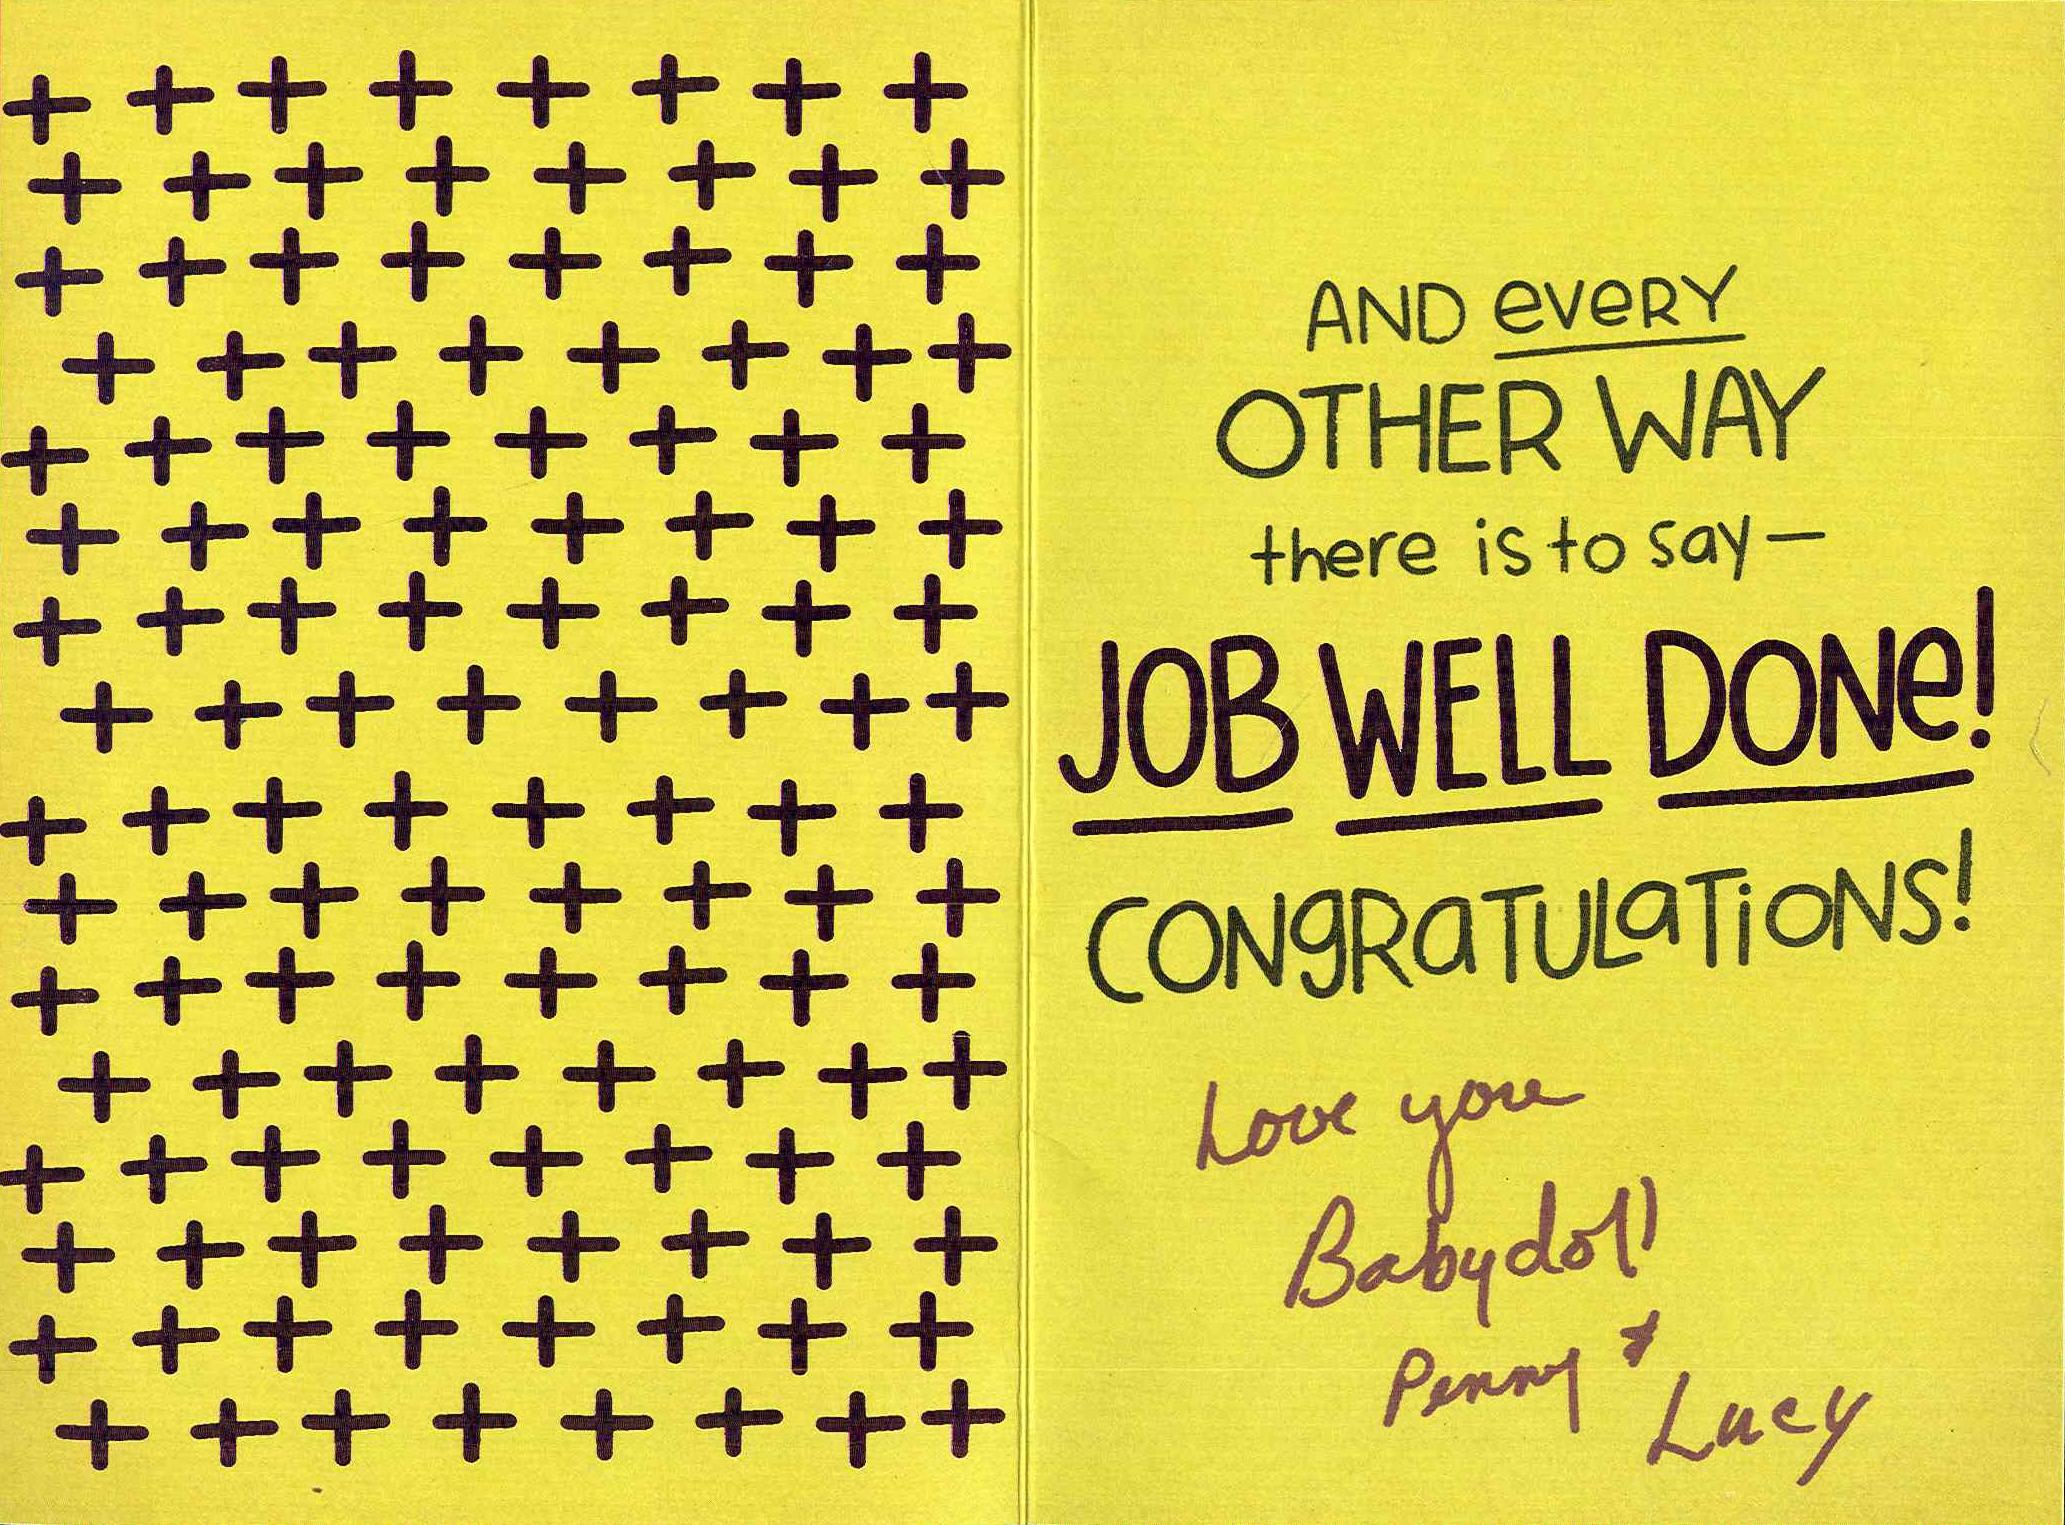 AND eveRY
OTHER WAY
there is to say—
JOB WELL DONe!
CONgRaTULaTiONS!
Love you
Babydoll
Penny &
Lucy